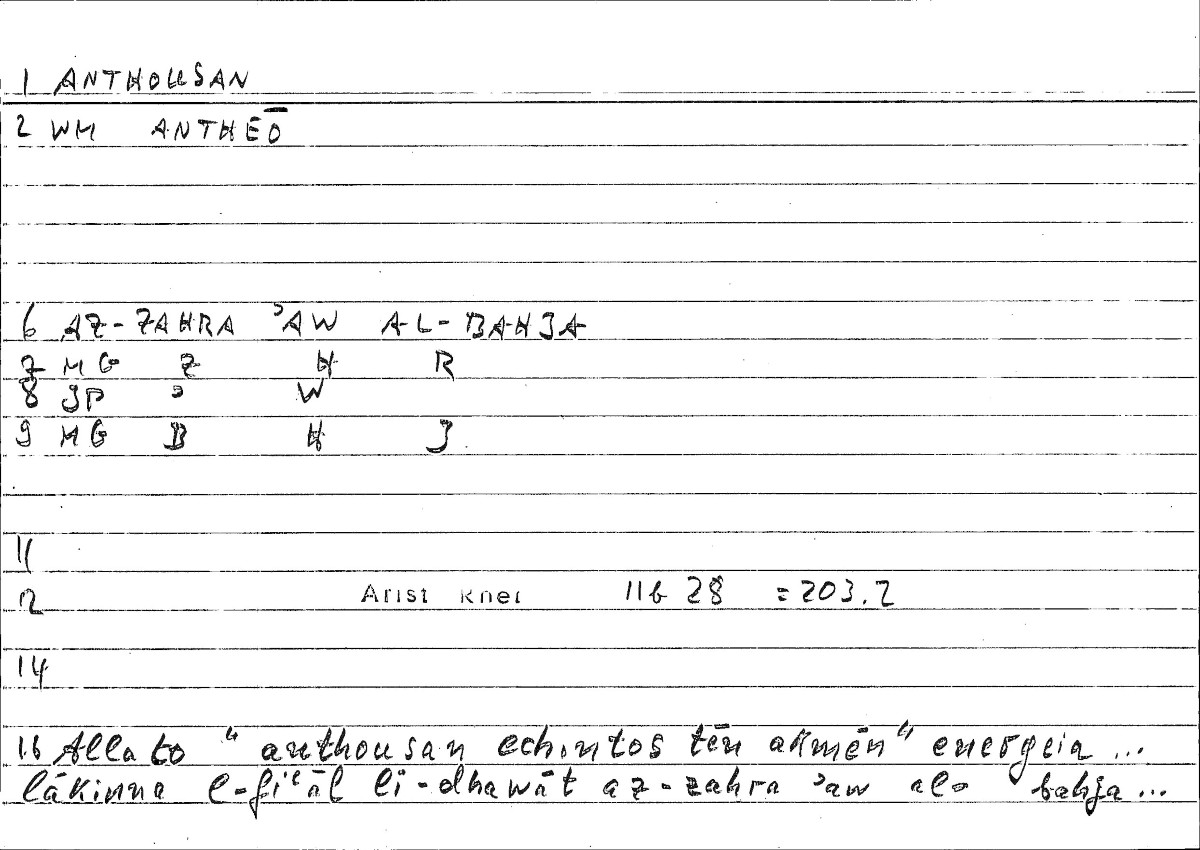 1 ANTHOUSAN
2 WM ANTHEŌ
6 AZ-ZAHRA ʾAW AL-BAHJA
7 MG Z H R
8 JP ʾ W
9 MG B H J
11
12 Arist Rhet 11b 28 = 203.2
14
16 Alla to "anthousan echontos tēn akmēn" energeia ...
lākinna l-fiʿāl li-dhawāt az-zahra ʾaw al- bahja ...